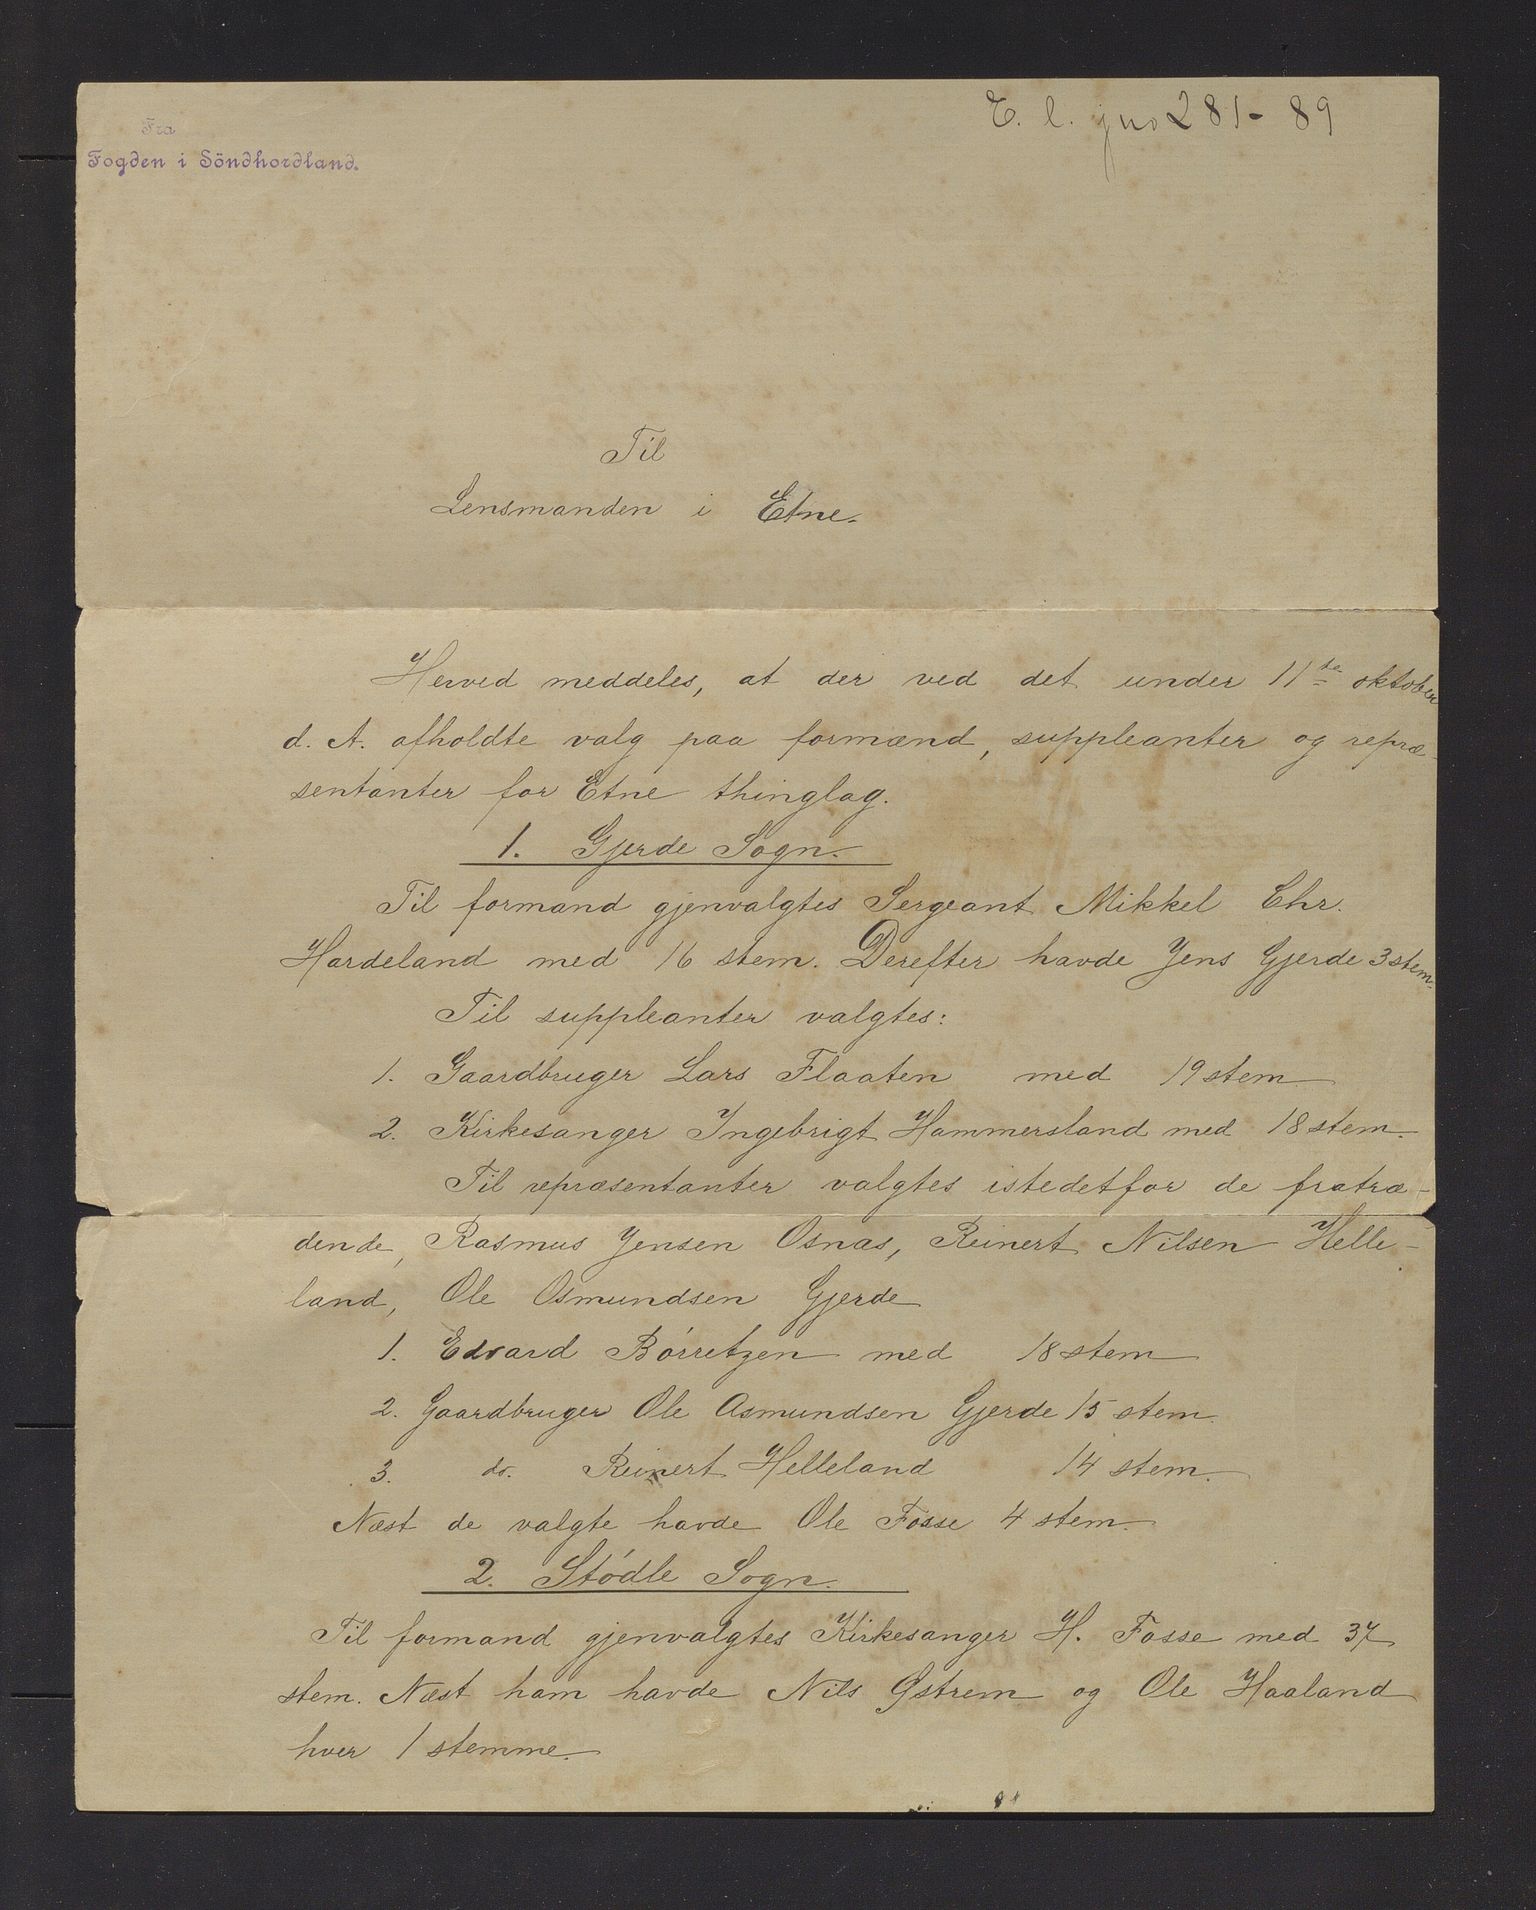 E. l. jno 281-89
Fra
Fogden i Söndhordland.
Til
Lensmanden i Etne.
Herved meddeles, at der ved det under 11te oktober
d. A. afholdte valg paa formænd, suppleanter og repræ-
sentanter for Etne thinglag.
1. Gjerde Sogn.
Til formand gjenvalgtes Sergeant Mikkel Chr.
Hardeland med 16 stem. Derefter havde Jens Gjerde 3 stem.
Til suppleanter valgtes:
1. Gaardbruger Lars Flaaten med 19 stem
2. Kirkesanger Ingebrigt Hammersland med 18 stem.
Til repræsentanter valgtes istedetfor de fratræ-
dende, Rasmus Jensen Osnæs, Reinert Nilsen Helle-
land, Ole Osmundsen Gjerde
1. Edvard Børretzen med 18 stem
2. Gaardbruger Ole Asmundsen Gjerde 15 stem.
3. do. Reinert Helleland 14 stem.
Næst de valgte havde Ole Fosse 4 stem.
2. Stødle Sogn.
Til formand gjenvalgtes Kirkesanger H. Fosse med 37
stem. Næst ham havde Nils Østrem og Ole Haaland
hver 1 stemme.